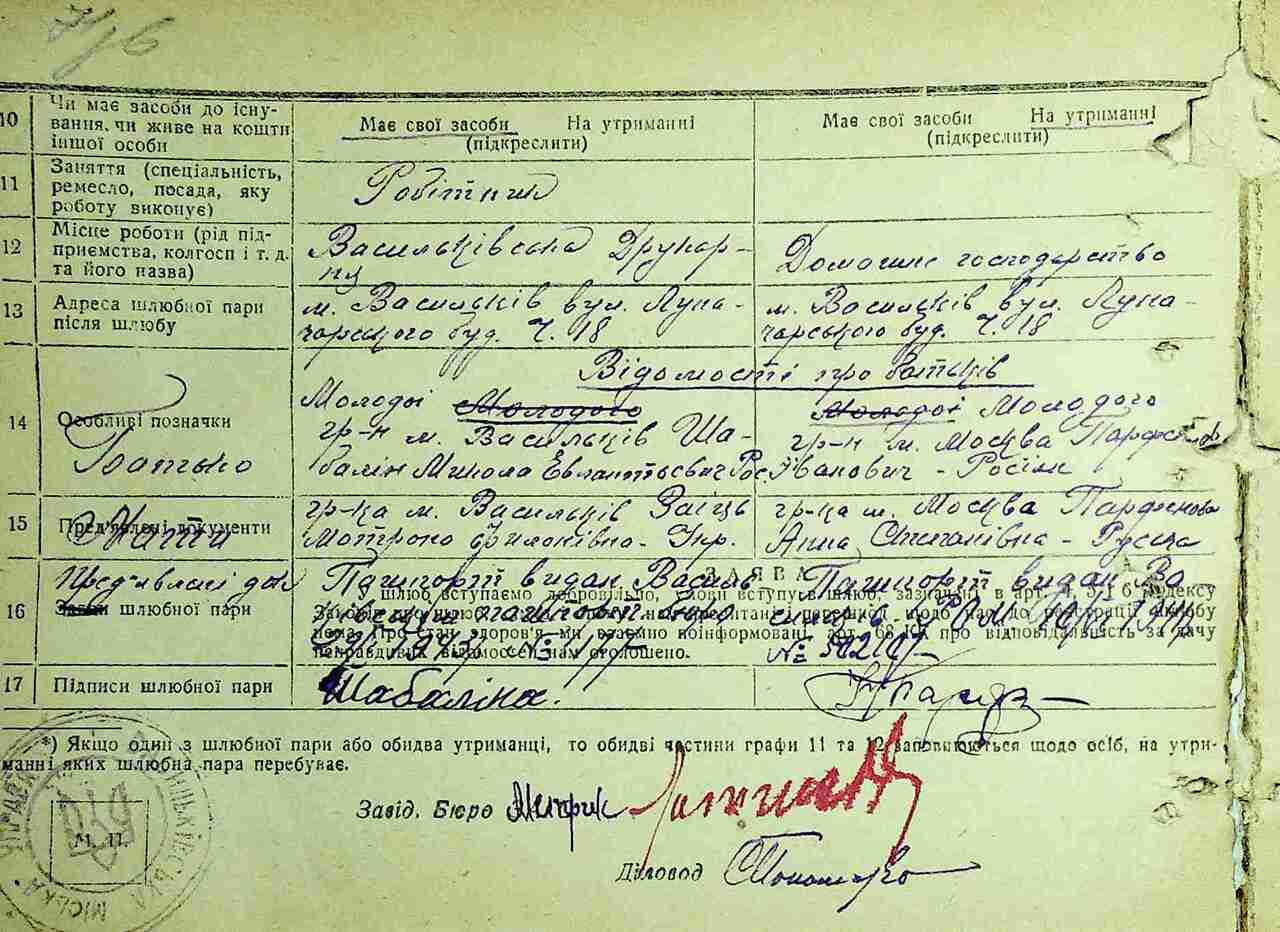 10 Чи має засоби до існу-
вання, чи живе на кошти
іншої особи
Має свої засоби На утриманні
(підкреслити)
Має свої засоби На утриманні
(підкреслити)
11 Заняття (спеціальність,
ремесло, посада, яку
роботу виконує)
Робітник
12 Місце роботи (рід під-
приємства, колгосп і т. д.
та його назва)
Васильківська Друкар-
ня
Домашнє господарство
13 Адреса шлюбної пари
після шлюбу
м. Васильків вул. Луна-
чарського буд. Ч. 18
м. Васильків вул. Луна-
чарського буд. Ч. 18
Відомості про батьків
14 Особливі позначки
Батько
Молодої Молодого
гр-н м. Васильків Ша-
балін Микола Рос.
Молодої Молодого
гр-н м. Москва
Іванович - Росіян
15 Пред'явлені документи
Мати
гр-ка м. Васильків Заїць
Мотрона Филонівна - Укр.
гр-ка м. Москва Парфенова
Анна Степанівна - Руська
Пред'явлені док
16 шлюбної пари
ЗАЯВА
У шлюб вступаємо добровільно, умови вступу в шлюб, зазначені в арт. 4, 5 і 6 Кодексу
нема. Про стан здоров'я ми взаємно поінформовані, арт. 68 КК про відповідальність за дачу
неправдивих відомостей нам оголошено.
Пашпорт видан Василь
Пашпорт видан Ва
17 Підписи шлюбної пари
Шабаліна.
*) Якщо один з шлюбної пари або обидва утриманці, то обидві частини графи 11 та 12 заповнюються щодо осіб, на утри-
манні яких шлюбна пара перебуває.
Завід. Бюро
М. П.
Діловод